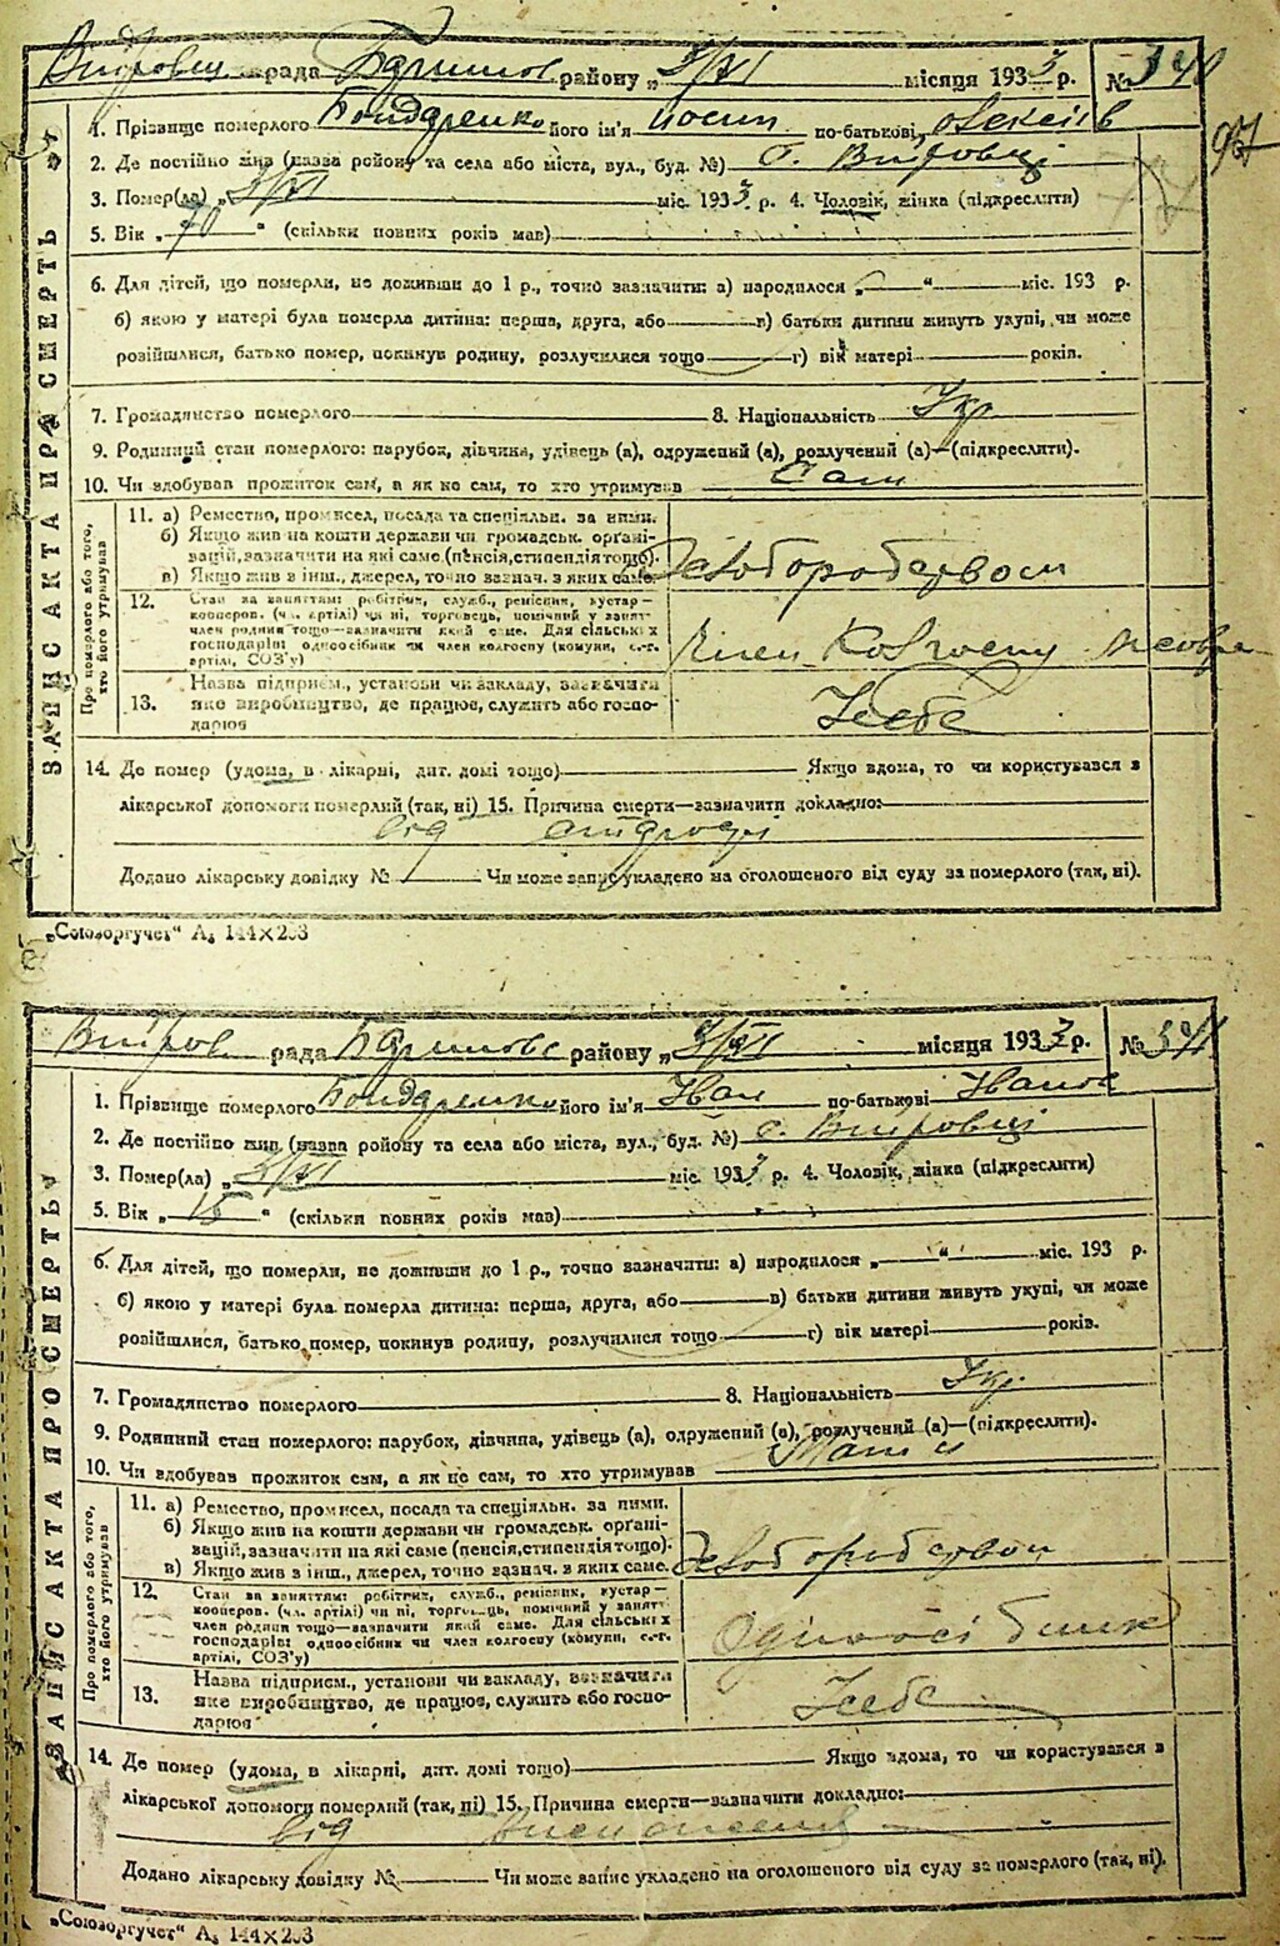 рада Баришов району „3/VI місяця 1933 р. № 340
97
ЗАПИС АКТА ПРО СМЕРТЬ
1. Прізвище померлого Бондаренко його ім'я Йосип по-батькові Олексіїв
2. Де постійно жив (назва району та села або міста, вул., буд. №) с.
3. Помер(ла) „3/VI міс. 1933 р. 4. Чоловік, жінка (підкреслити)
5. Вік „70“ (скільки повних років мав)
6. Для дітей, що померли, не доживши до 1 р., точно зазначити: а) народилося „ “ міс. 193 р.
б) якою у матері була померла дитина: перша, друга, або в) батьки дитини живуть укупі, чи може
розійшлися, батько помер, покинув родину, розлучилися тощо г) вік матері років.
7. Громадянство померлого 8. Національність Укр
9. Родинний стан померлого: парубок, дівчина, удівець (а), одружений (а), розлучений (а)—(підкреслити).
10. Чи здобував прожиток сам, а як не сам, то хто утримував Сам
Про померлого або того, хто його утримував
11. а) Ремество, промисел, посада та спеціяльн. за ними.
б) Якщо жив на кошти держави чи громадськ. органі-
зацій, зазначити на які саме (пенсія, стипендія тощо).
в) Якщо жив з інш., джерел, точно зазнач. з яких саме. Хлібороб
12. Стан за заняттям: робітник, служб., ремісник, кустар—
кооперов. (чл. артілі) чи ні, торговець, помічний у занятт
член родини тощо—зазначити який саме. Для сільських
господарів: одноосібник чи член колгоспу (комуни, с.-г.
артілі, СОЗ'у) Член колгоспу
13. Назва підприєм., установи чи закладу, зазначити
яке виробництво, де працює, служить або госпо-
дарює У себе
14. Де помер (удома, в лікарні, дит. домі тощо) Якщо вдома, то чи користувався з
лікарської допомоги померлий (так, ні) 15. Причина смерти—зазначити докладно:
від
Додано лікарську довідку № Чи може запис укладено на оголошеного від суду за померлого (так, ні).
„Союзоргучет“ А₅ 144×203
рада Баришовс району „3/VI місяця 1933 р. № 341
ЗАПИС АКТА ПРО СМЕРТЬ
1. Прізвище померлого Бондаренко його ім'я Іван по-батькові Іванов
2. Де постійно жив (назва району та села або міста, вул., буд. №) с.
3. Помер(ла) „3/VI міс. 1933 р. 4. Чоловік, жінка (підкреслити)
5. Вік „15“ (скільки повних років мав)
6. Для дітей, що померли, не доживши до 1 р., точно зазначити: а) народилося „ “ міс. 193 р.
б) якою у матері була померла дитина: перша, друга, або в) батьки дитини живуть укупі, чи може
розійшлися, батько помер, покинув родину, розлучилися тощо г) вік матері років.
7. Громадянство померлого 8. Національність Укр.
9. Родинний стан померлого: парубок, дівчина, удівець (а), одружений (а), розлучений (а)—(підкреслити).
10. Чи здобував прожиток сам, а як не сам, то хто утримував
Про померлого або того, хто його утримував
11. а) Ремество, промисел, посада та спеціяльн. за ними.
б) Якщо жив на кошти держави чи громадськ. органі-
зацій, зазначити на які саме (пенсія, стипендія тощо).
в) Якщо жив з інш., джерел, точно зазнач. з яких саме.
12. Стан за заняттям: робітник, служб., ремісник, кустар—
кооперов. (чл. артілі) чи ні, торговець, помічний у занятт
член родини тощо—зазначити який саме. Для сільських
господарів: одноосібник чи член колгоспу (комуни, с.-г.
артілі, СОЗ'у)
13. Назва підприєм., установи чи закладу, зазначити
яке виробництво, де працює, служить або госпо-
дарює У себе
14. Де помер (удома, в лікарні, дит. домі тощо) Якщо вдома, то чи користувався з
лікарської допомоги померлий (так, ні) 15. Причина смерти—зазначити докладно:
від виснаження
Додано лікарську довідку № Чи може запис укладено на оголошеного від суду за померлого (так, ні).
„Союзоргучет“ А₅ 144×203